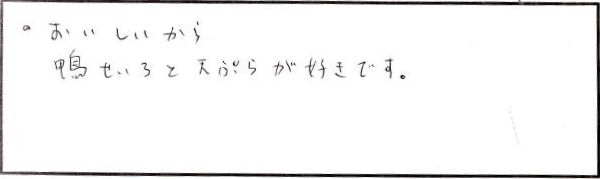 。おいしいから
鴨せいろと天ぷらが好きです。